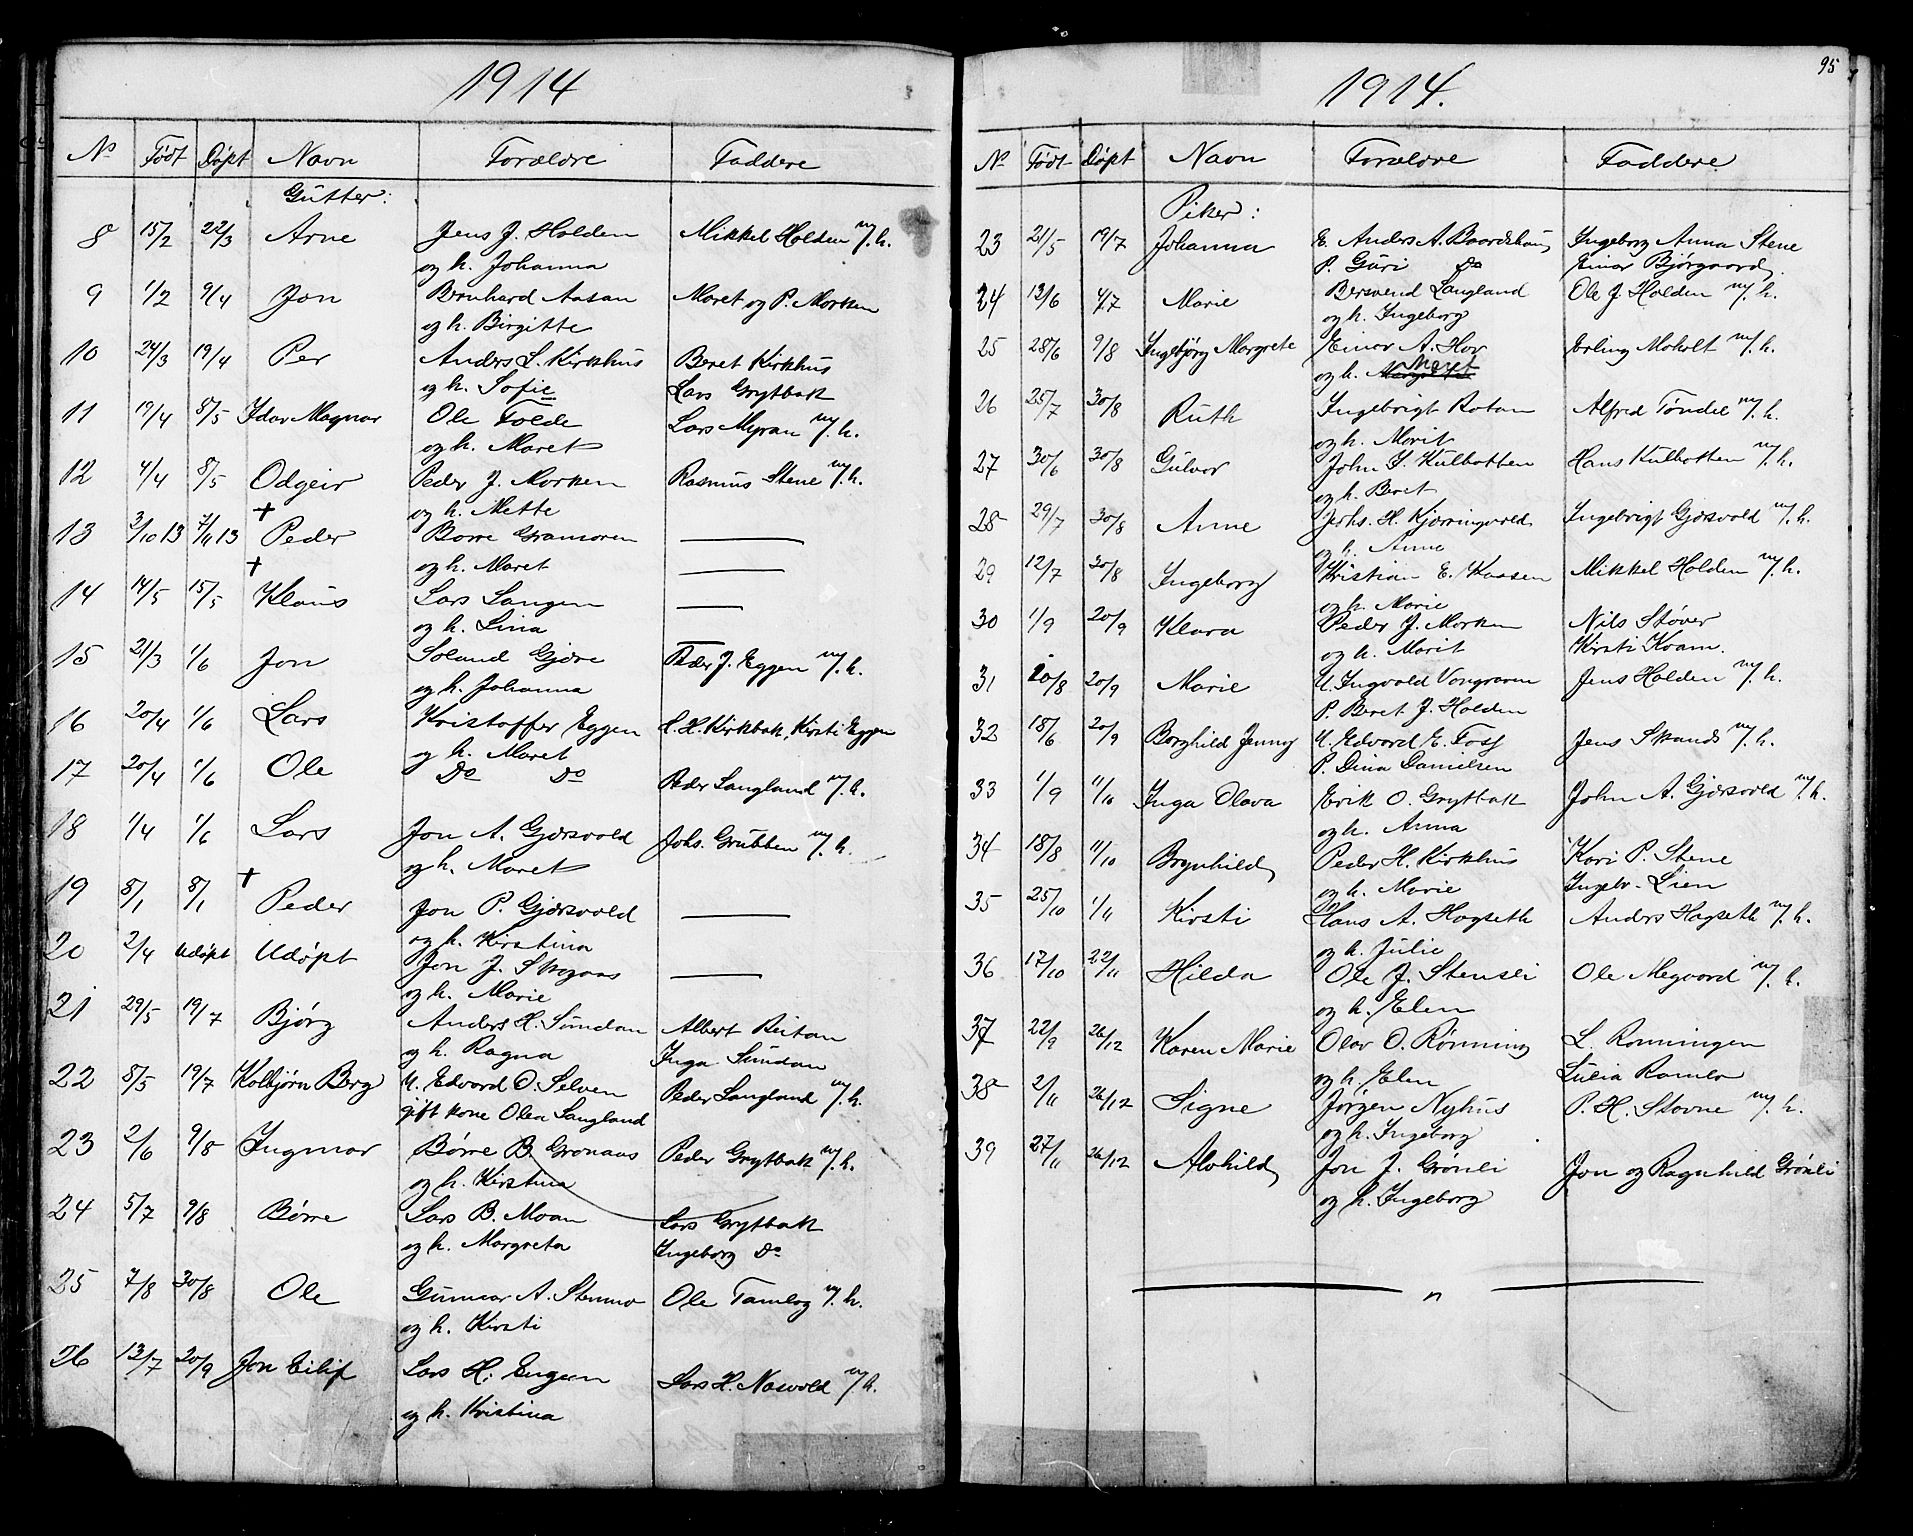 1914
No Født Døpt Navn Forældre Faddere
Gutter:
8 15/2 22/3 Arne Jens J. Holden Mikkel Holden m/h.
og h. Johanna
9 1/2 9/4 Jon Bernhard Aasan Maret og P. Morken
og h. Birgitte
10 24/3 19/4 Per Anders L. Kirkhus Beret Kirkhus
og h. Sofie Lars Grytbak
11 19/4 8/5 Idar Magnar Ole Folde Lars Myran m/h.
og h. Maret
12 4/4 8/5 Odgeir Peder J. Morken Rasmus Stene m/h.
og h. Mette
13 3/10 13 7/11 13 + Peder Borre Gramoren —
og h. Maret —
14 14/5 15/5 + Klaus Lars Langen —
og h. Lina —
15 21/3 1/6 Jon Gjøre Peder J. Eggen m/h.
og h. Johanna
16 20/4 1/6 Lars Kristoffer Eggen L. H. Kirkbak, Kirsti Eggen
og h. Maret
17 20/4 1/6 Ole Do Do Peder Langland m/h.
18 1/4 1/6 Lars Jon A. Gjersvold Johs. Grubben m/h.
og h. Maret
19 8/1 8/1 + Peder Jon P. Gjersvold —
og h. Kirstina
20 2/4 Udøpt Udøpt Jon J. Skogaas —
og h. Marie
21 29/5 19/7 Bjørg Anders H. Sundan Albert Reitan
og h. Ragna Inga Sundan
22 8/5 19/7 Kolbjørn Berg U. Edvard O. Selven Peder Langland m/h.
gift kone Olea Langland
23 2/6 9/8 Ingmar Børre B. Gronaas Peder Grytbak m/h.
og h. Kirstina
24 5/7 9/8 Børre Lars B. Moan Lars Grytbak
og h. Margreta Ingeborg Do
25 7/8 30/8 Ole Gunnar A. Stenmo Ole Tamlag m/h.
og h. Kirsti
26 13/7 20/9 Jon Eilif Lars H. Engen Lars H. Nasvold m/h.
og h. Kristina
95
1914.
No Født Døpt Navn Forældre Faddere
Piker:
23 21/5 19/7 Johanna E. Anders A. Baardshaug Ingeborg Anna Stene
P. Guri Do Einar Bjørgaard.
24 13/6 4/7 Marie Bersvend Langland Ole J. Holden m/h.
og h. Ingeborg
25 28/6 9/8 Ingebjørg Margrete Einar A. Hov Erling Moholt m/h.
og h. Maret
26 25/7 30/8 Ruth Ingebrigt Rotan Alfred Tøndel m/h.
og h. Marit
27 30/6 30/8 Gulvor John S. Kulbotten Hans Kulbotten m/h.
og h. Beret
28 29/7 30/8 Anne Johs. H. Kjerringvold Ingebrigt Gjersvold m/h.
og h. Anne
29 12/7 30/8 Ingeborg Kristian E. Kaasen Mikkel Holden m/h.
og h. Marie
30 1/9 20/9 Klara Peder J. Morken Nils Støver
og h. Marit Kirsti Kvam.
31 20/8 20/9 Marie U. Ingvald Vongraven Jens Holden m/h.
P. Beret J. Holden
32 18/6 20/9 Borghild Jenny U. Edvard E. Foss Jens Skands m/h.
P. Dina Danielsen
33 1/9 11/10 Inga Olava Erik O. Grytbak John A. Gjersvold m/h.
og h. Anna
34 18/8 11/10 Brynhild Peder H. Kirkhus Kari P. Stene
og h. Marie Ingebr. Lien
35 25/10 1/11 Kirsti Hans A. Hagseth Anders Hagseth m/h.
og h. Julie
36 17/10 22/11 Hilda Ole J. Stensli Ole Megaard m/h.
og h. Elen
37 22/9 26/12 Karen Marie Olav O. Rønning L. Ronningen
og h. Elen Lucia Ramlo
38 2/11 26/12 Signe Jørgen Nyhus P. H. Stovne m/h.
og h. Ingeborg
39 27/11 26/12 Alvhild Jon J. Grønli Jon og Ragnhild Grønli
og h. Ingeborg